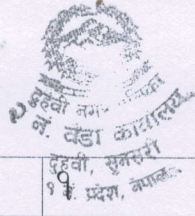 दुहवी नगरपालिका
नं. वडा कार्यालय
दुहवी, सुनसरी
१ नं. प्रदेश, नेपाल
१